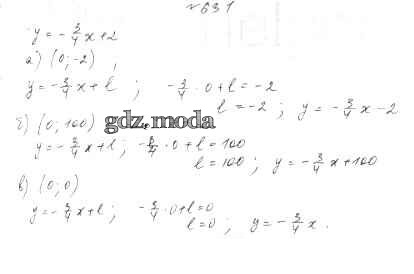 № 631
y = - 3/4 x + 2
а) (0; -2) ;
y = - 3/4 x + l ; - 3/4 · 0 + l = -2
l = -2 ; y = - 3/4 x - 2
б) (0; 100) gdz.moda
y = - 3/4 x + l ; - 3/4 · 0 + l = 100
l = 100 ; y = - 3/4 x + 100
в) (0; 0)
y = - 3/4 x + l ; - 3/4 · 0 + l = 0
l = 0 ; y = - 3/4 x .